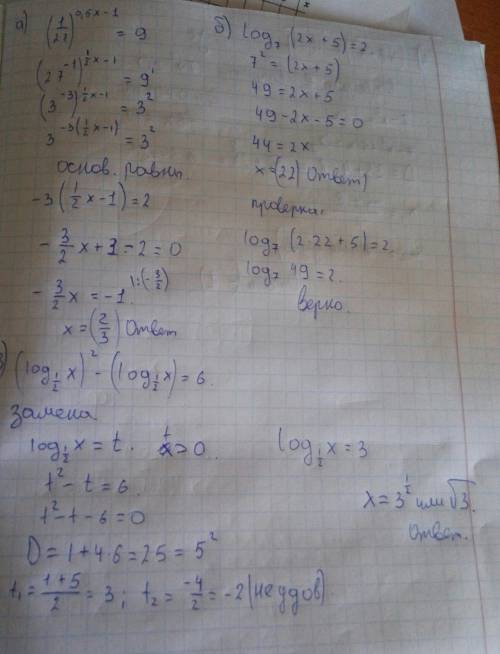 а) (1/27)^(0,5x-1) = 9
(27^(-1))^(1/2 x-1) = 9^1
(3^(-3))^(1/2 x-1) = 3^2
3^(-3(1/2 x-1)) = 3^2
основ. равны.
-3(1/2 x-1)=2
-3/2 x+3-2=0
-3/2 x = -1 |:(-3/2)
x = (2/3) Ответ
б) log₇ (2x+5)=2.
7^2 = (2x+5)
49=2x+5
49-2x-5=0
44=2x
x=(22) Ответ)
проверка:
log₇ (2·22+5)=2.
log₇ 49=2.
верно.
) (log_(1/2) x)^2 - (log_(1/2) x)=6.
замена
log_(1/2) x=t. t>0.
t^2-t=6.
t^2-t-6=0
D=1+4·6=25=5^2
t₁=(1+5)/2=3; t₂=-4/2=-2(не удов)
log_(1/2) x=3
x=3^(1/2) или √3.
Ответ.